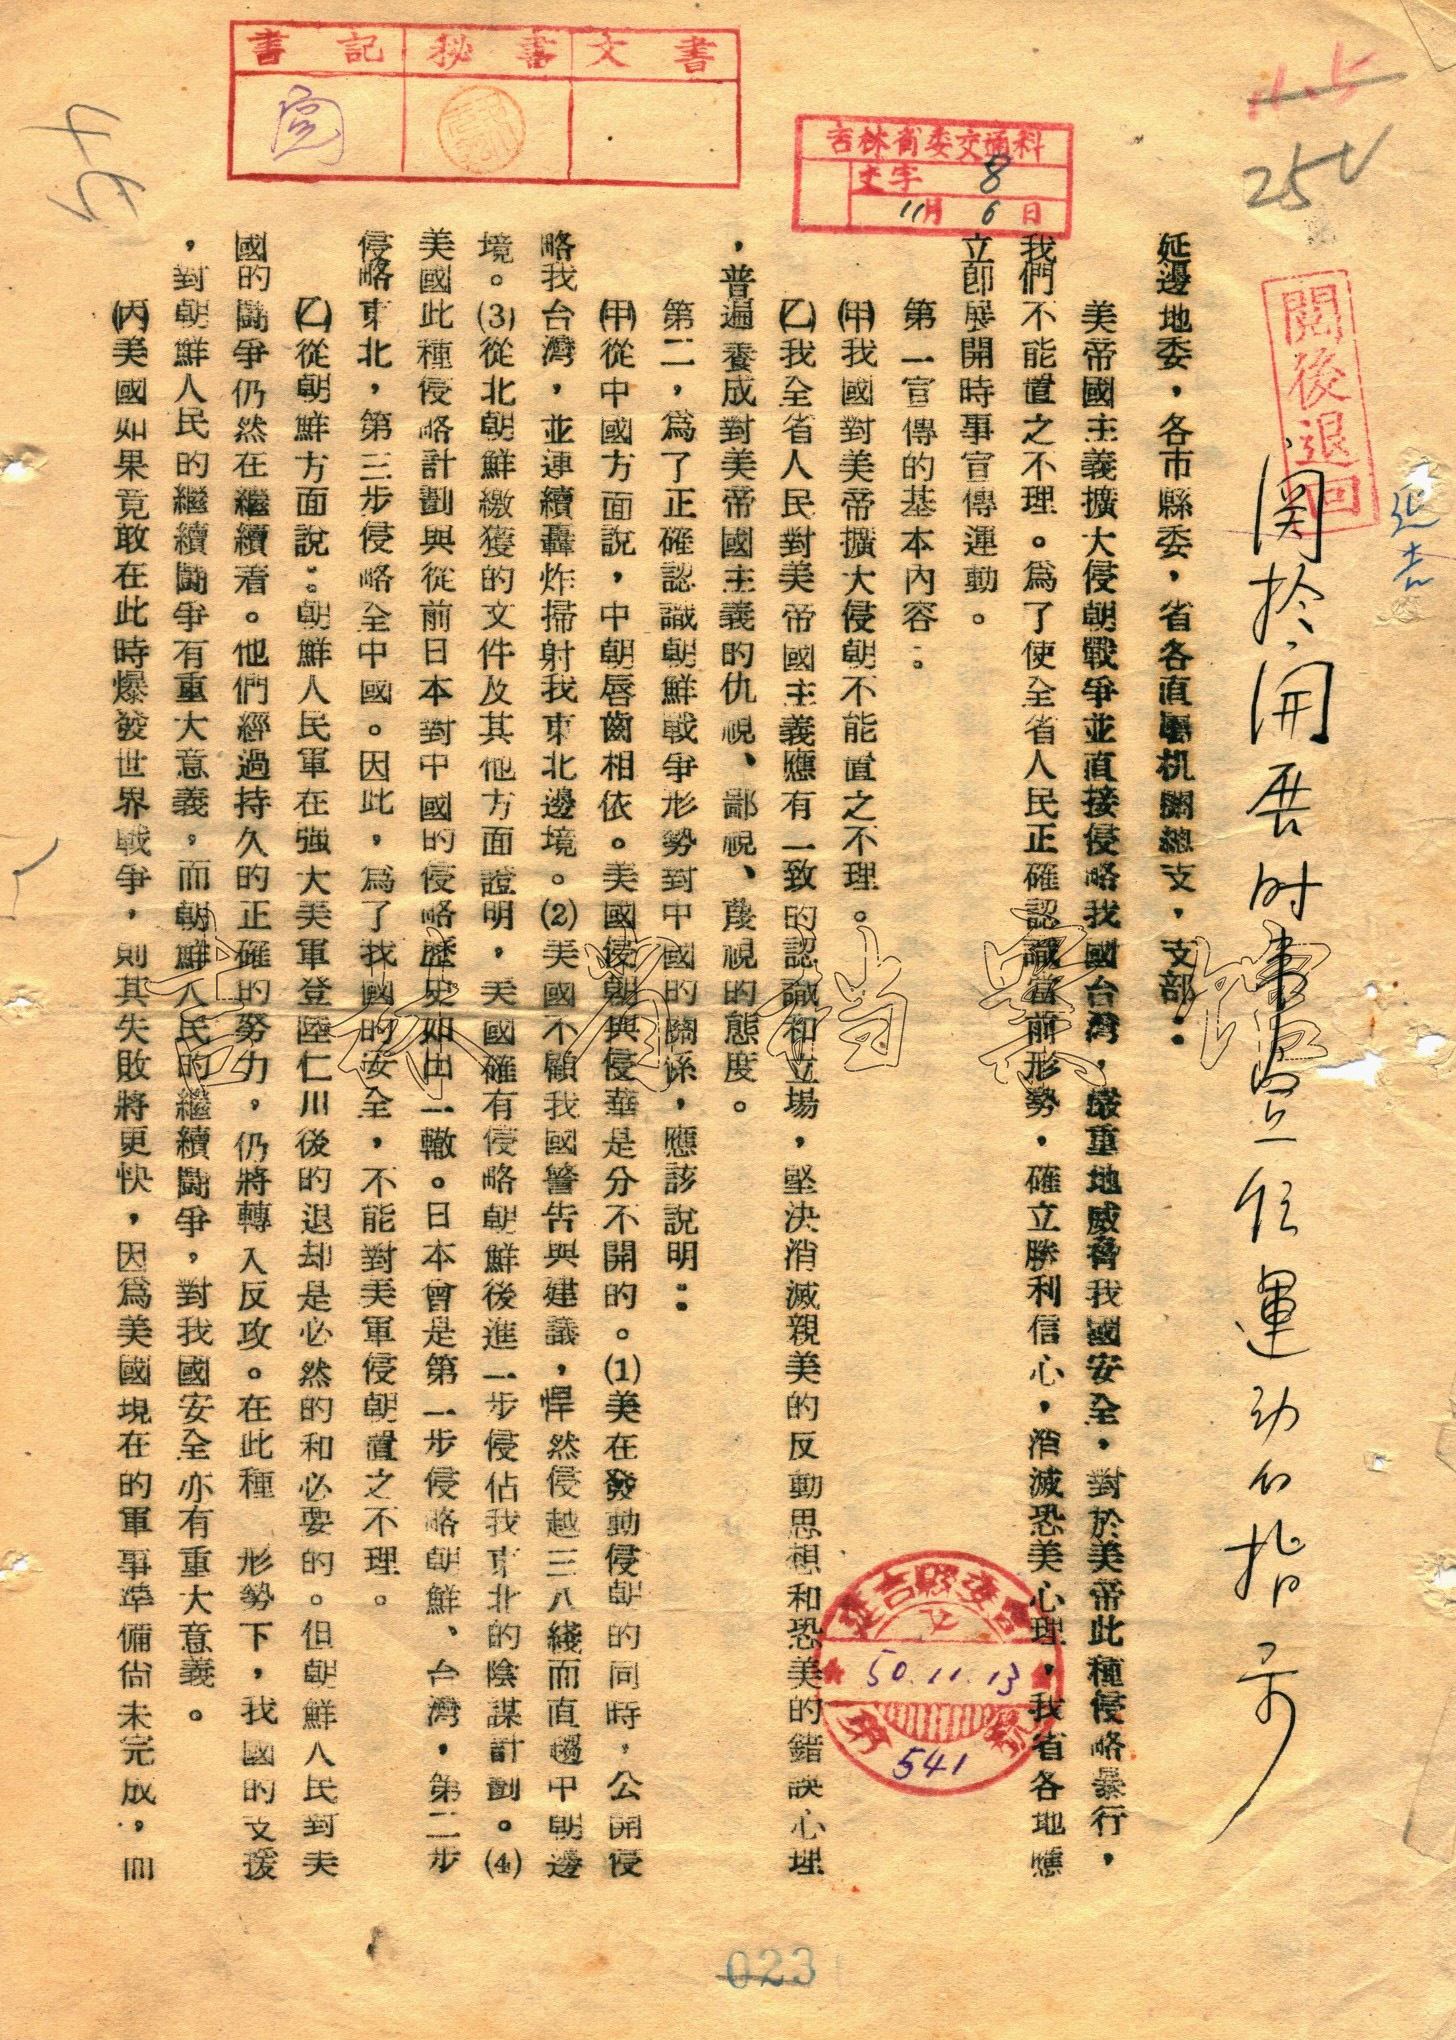 書記 秘書 文書
吉林省委交通科
文字 8
11月 6日
11.5
25
閱後退回
関於開展时事宣传運动的指示
延邊地委，各市縣委，省各直屬机關總支，支部：
美帝國主義擴大侵朝戰爭並直接侵略我國台灣，嚴重地威脅我國安全，對於美帝此種侵略暴行，
我們不能置之不理。爲了使全省人民正確認識當前形勢，確立勝利信心，消滅恐美心理，我省各地應
立卽展開時事宣傳運動。
第一宣傳的基本內容：
(甲)我國對美帝擴大侵朝不能置之不理。
(乙)我全省人民對美帝國主義應有一致的認識和立場，堅決消滅親美的反動思想和恐美的錯誤心理
，普遍養成對美帝國主義的仇視、鄙視、蔑視的態度。
第二，爲了正確認識朝鮮戰爭形勢對中國的關係，應該說明：
(甲)從中國方面說，中朝唇齒相依。美國侵朝與侵華是分不開的。(1)美在發動侵朝的同時，公開侵
略我台灣，並連續轟炸掃射我東北邊境。(2)美國不顧我國警告與建議，悍然侵越三八綫而直趨中朝邊
境。(3)從北朝鮮繳獲的文件及其他方面證明，美國確有侵略朝鮮後進一步侵佔我東北的陰謀計劃。(4)
美國此種侵略計劃與從前日本對中國的侵略歷史如出一轍。日本會是第一步侵略朝鮮、台灣，第二步
侵略東北，第三步侵略全中國。因此，爲了我國的安全，不能對美軍侵朝置之不理。
(乙)從朝鮮方面說：朝鮮人民軍在强大美軍登陸仁川後的退却是必然的和必要的。但朝鮮人民對美
國的鬪爭仍然在繼續着。他們經過持久的正確的努力，仍將轉入反攻。在此種　形勢下，我國的支援
，對朝鮮人民的繼續鬪爭有重大意義，而朝鮮人民的繼續鬪爭，對我國安全亦有重大意義。
(丙)美國如果竟敢在此時爆發世界戰爭，則其失敗將更快，因爲美國現在的軍事準備尙未完成，而
吉林省档案馆
延吉縣委會
文
50.11.13
541
號
023